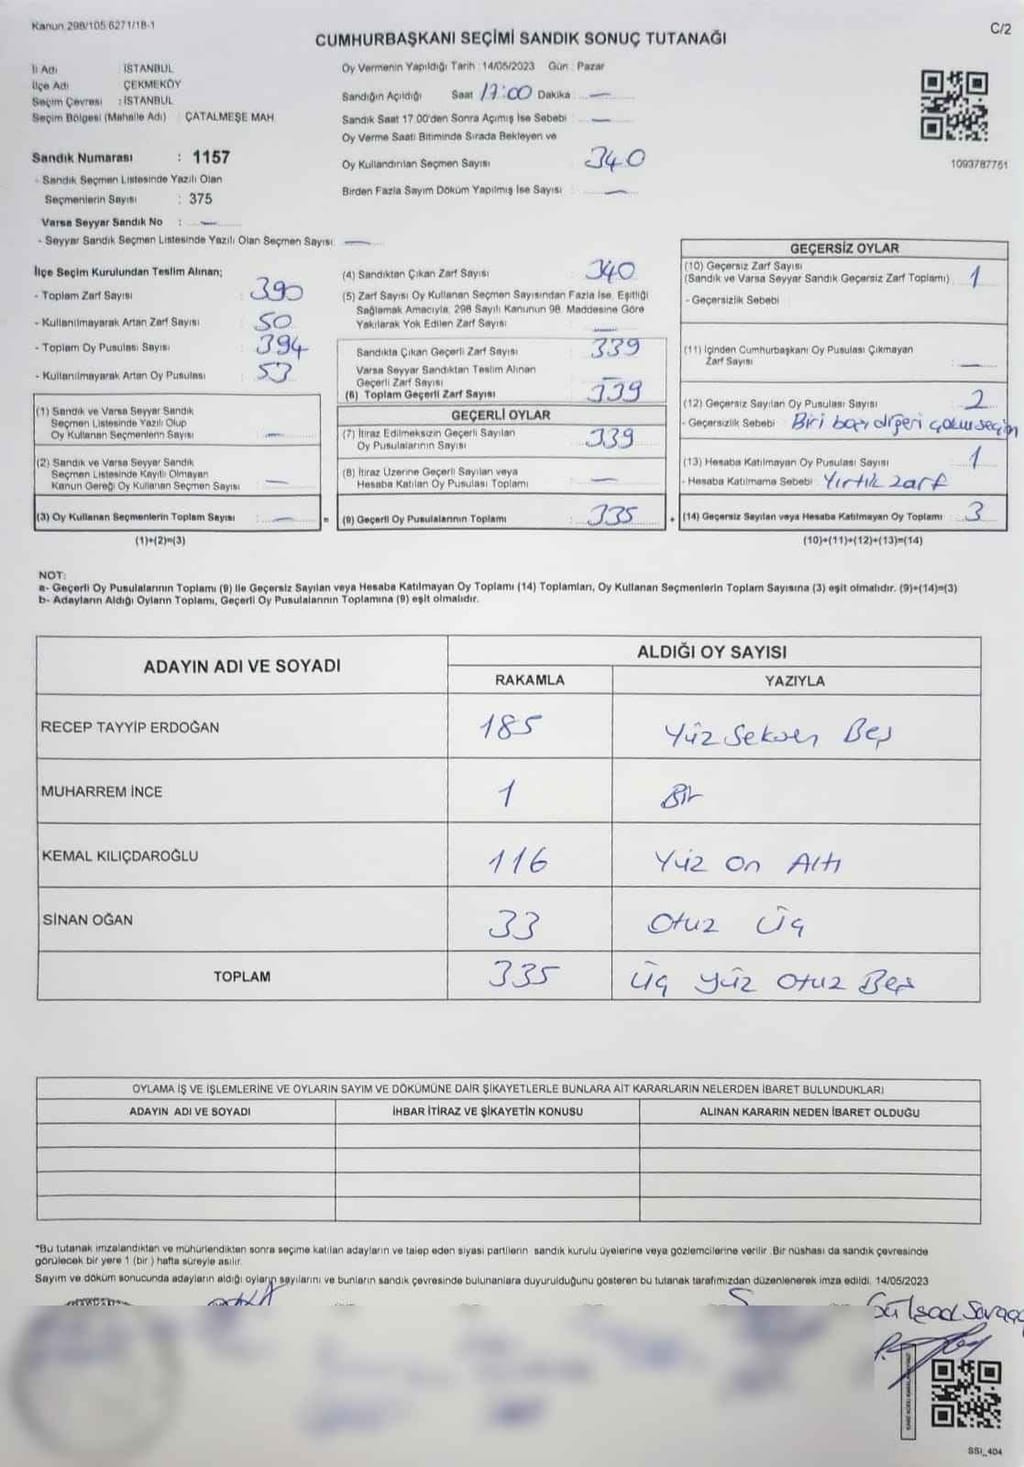 Kanun 298/105 6271/18-1
C/2
CUMHURBAŞKANI SEÇİMİ SANDIK SONUÇ TUTANAĞI
İl Adı : İSTANBUL
İlçe Adı : ÇEKMEKÖY
Seçim Çevresi : İSTANBUL
Seçim Bölgesi (Mahalle Adı) : ÇATALMEŞE MAH.
Sandık Numarası : 1157
- Sandık Seçmen Listesinde Yazılı Olan
Seçmenlerin Sayısı : 375
Varsa Seyyar Sandık No : —
- Seyyar Sandık Seçmen Listesinde Yazılı Olan Seçmen Sayısı : —
Oy Vermenin Yapıldığı Tarih : 14/05/2023 Gün : Pazar
Sandığın Açıldığı Saat 17:00 Dakika —
Sandık Saat 17.00'den Sonra Açımış İse Sebebi : —
Oy Verme Saati Bitiminde Sırada Bekleyen ve
Oy Kullandırılan Seçmen Sayısı : 340
Birden Fazla Sayım Döküm Yapılmış İse Sayısı : —
1093787751
İlçe Seçim Kurulundan Teslim Alınan;
- Toplam Zarf Sayısı : 390
- Kullanılmayarak Artan Zarf Sayısı : 50
- Toplam Oy Pusulası Sayısı : 394
- Kullanılmayarak Artan Oy Pusulası : 53
(1) Sandık ve Varsa Seyyar Sandık
Seçmen Listesinde Yazılı Olup
Oy Kullanan Seçmenlerin Sayısı : —
(2) Sandık ve Varsa Seyyar Sandık
Seçmen Listesinde Kayıtlı Olmayan
Kanun Gereği Oy Kullanan Seçmen Sayısı : —
(3) Oy Kullanan Seçmenlerin Toplam Sayısı : —
(1)+(2)=(3)
(4) Sandıktan Çıkan Zarf Sayısı : 340
(5) Zarf Sayısı Oy Kullanan Seçmen Sayısından Fazla İse, Eşitliği
Sağlamak Amacıyla, 298 Sayılı Kanunun 98. Maddesine Göre
Yakılarak Yok Edilen Zarf Sayısı : —
Sandıkta Çıkan Geçerli Zarf Sayısı : 339
Varsa Seyyar Sandıktan Teslim Alınan
Geçerli Zarf Sayısı : —
(6) Toplam Geçerli Zarf Sayısı : 339
GEÇERLİ OYLAR
(7) İtiraz Edilmeksizin Geçerli Sayılan
Oy Pusulalarının Sayısı : 339
(8) İtiraz Üzerine Geçerli Sayılan veya
Hesaba Katılan Oy Pusulası Toplamı : —
(9) Geçerli Oy Pusulalarının Toplamı : 335
GEÇERSİZ OYLAR
(10) Geçersiz Zarf Sayısı
(Sandık ve Varsa Seyyar Sandık Geçersiz Zarf Toplamı) : 1
- Geçersizlik Sebebi
(11) İçinden Cumhurbaşkanı Oy Pusulası Çıkmayan
Zarf Sayısı : —
(12) Geçersiz Sayılan Oy Pusulası Sayısı : 2
- Geçersizlik Sebebi Biri boş diğeri çoklu seçim
(13) Hesaba Katılmayan Oy Pusulası Sayısı : 1
- Hesaba Katılmama Sebebi : Yırtık zarf
(14) Geçersiz Sayılan veya Hesaba Katılmayan Oy Toplamı : 3
(10)+(11)+(12)+(13)=(14)
NOT:
a- Geçerli Oy Pusulalarının Toplamı (9) ile Geçersiz Sayılan veya Hesaba Katılmayan Oy Toplamı (14) Toplamları, Oy Kullanan Seçmenlerin Toplam Sayısına (3) eşit olmalıdır. (9)+(14)=(3)
b- Adayların Aldığı Oyların Toplamı, Geçerli Oy Pusulalarının Toplamına (9) eşit olmalıdır.
ADAYIN ADI VE SOYADI
ALDIĞI OY SAYISI
RAKAMLA YAZIYLA
RECEP TAYYİP ERDOĞAN 185 Yüz Seksen Beş
MUHARREM İNCE 1 Bir
KEMAL KILIÇDAROĞLU 116 Yüz On Altı
SİNAN OĞAN 33 Otuz Üç
TOPLAM 335 Üç Yüz Otuz Beş
OYLAMA İŞ VE İŞLEMLERİNE VE OYLARIN SAYIM VE DÖKÜMÜNE DAİR ŞİKAYETLERLE BUNLARA AİT KARARLARIN NELERDEN İBARET BULUNDUKLARI
ADAYIN ADI VE SOYADI İHBAR İTİRAZ VE ŞİKAYETİN KONUSU ALINAN KARARIN NEDEN İBARET OLDUĞU
*Bu tutanak imzalandıktan ve mühürlendikten sonra seçime katılan adayların ve talep eden siyasi partilerin sandık kurulu üyelerine veya gözlemcilerine verilir. Bir nüshası da sandık çevresinde
görülecek bir yere 1 (bir ) hafta süreyle asılır.
Sayım ve döküm sonucunda adayların aldığı oyların sayılarını ve bunların sandık çevresinde bulunanlara duyurulduğunu gösteren bu tutanak tarafımızdan düzenlenerek imza edildi. 14/05/2023
SSI_404